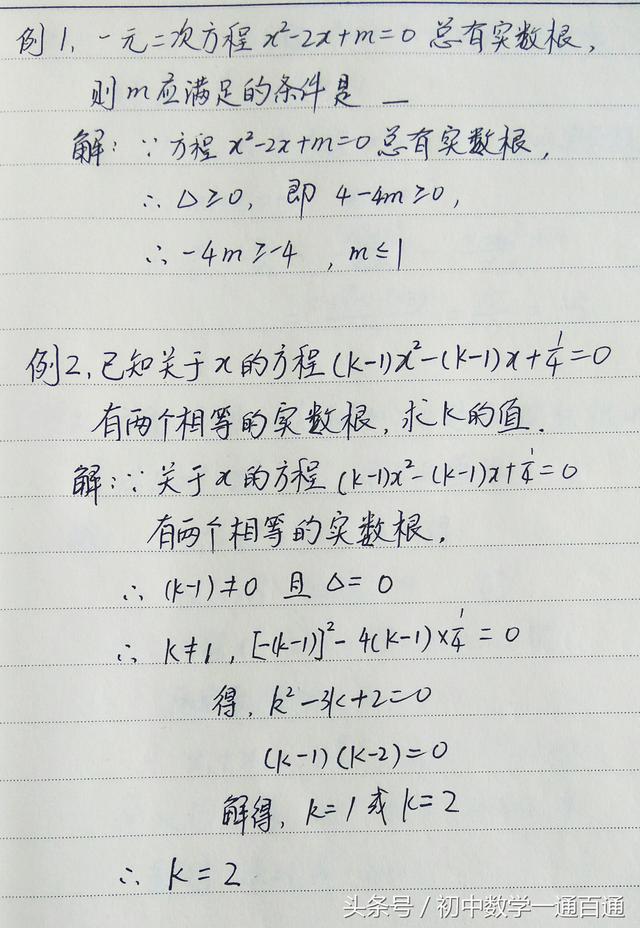 例1，一元二次方程 x²-2x+m=0 总有实数根，
则m应满足的条件是 __
解：∵方程 x²-2x+m=0 总有实数根，
∴ Δ≥0， 即 4-4m≥0，
∴ -4m≥-4 ，m≤1
例2，已知关于x的方程(k-1)x²-(k-1)x+1/4=0
有两个相等的实数根，求k的值．
解：∵关于x的方程(k-1)x²-(k-1)x+1/4=0
有两个相等的实数根，
∴ (k-1)≠0 且 Δ=0
∴ k≠1，[-(k-1)]²-4(k-1)×1/4=0
得，k²-3k+2=0
(k-1)(k-2)=0
解得，k=1或k=2
∴ k=2
头条号 / 初中数学一通百通